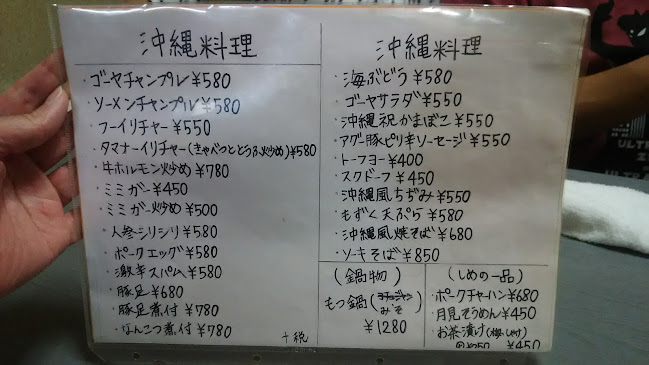 沖縄料理
・ゴーヤチャンプル ¥580
・ソーメンチャンプル ¥580
・フーイリチャー ¥550
・タマナーイリチャー(きゃべつととうふ炒め) ¥580
・牛ホルモン炒め ¥780
・ミミガー ¥450
・ミミガー炒め ¥500
・人参シリシリ ¥580
・ポークエッグ ¥580
・激辛スパム ¥580
・豚足 ¥680
・豚足煮付 ¥780
・なんこつ煮付 ¥780
+税
沖縄料理
・海ぶどう ¥580
・ゴーヤサラダ ¥550
・沖縄祝かまぼこ ¥550
・アグー豚ピリ辛ソーセージ ¥550
・トーフヨー ¥400
・スクドーフ ¥450
・沖縄風ちぢみ ¥550
・もずく天ぷら ¥580
・沖縄風焼そば ¥680
・ソーキそば ¥850
(鍋物)
もつ鍋(みそ)
¥1280
(しめの一品)
・ポークチャーハン ¥680
・月見そうめん ¥450
・お茶漬け(梅・しゃけ)
¥450
ULTR
ULTR